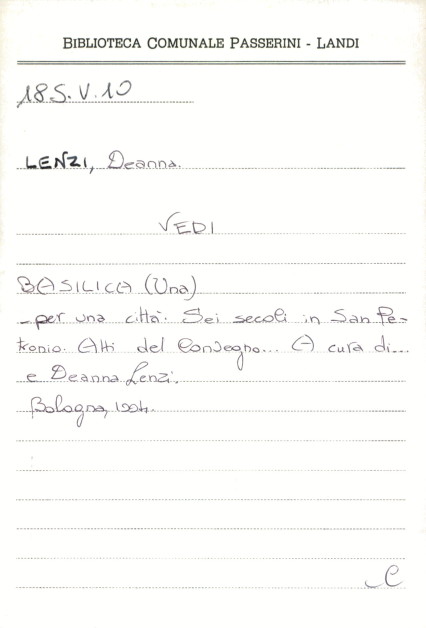 BIBLIOTECA COMUNALE PASSERINI - LANDI
18S.V.10
LENZI, Deanna.
VEDI
BASILICA (Una)
- per una città. Sei secoli in San Pe-
tronio. Atti del Convegno... A cura di...
e Deanna Lenzi.
Bologna, 1994.